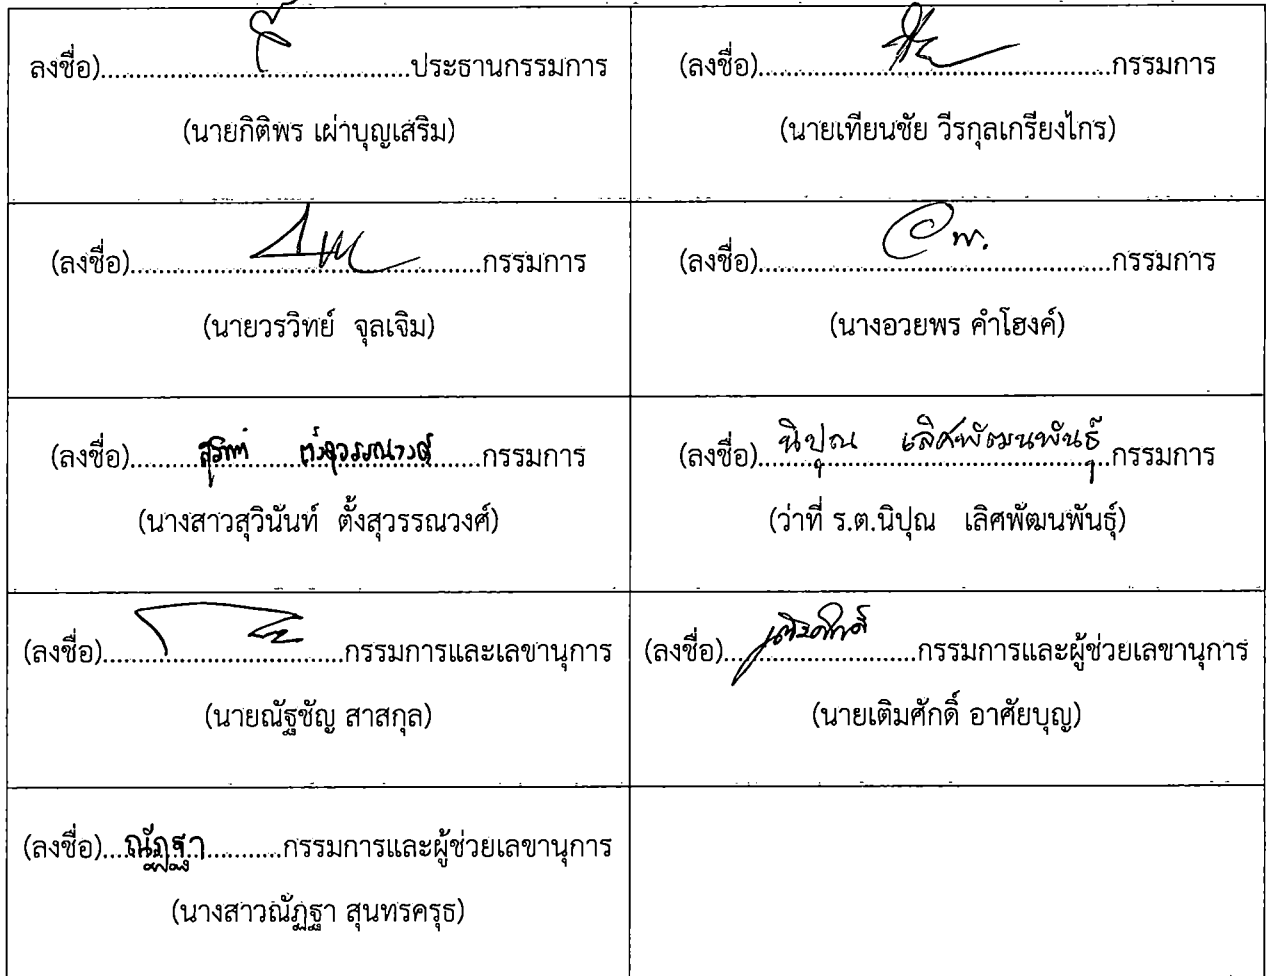 ลงชื่อ)........................................ประธานกรรมการ
(นายกิติพร เผ่าบุญเสริม)
(ลงชื่อ)..............................................กรรมการ
(นายเทียนชัย วีรกุลเกรียงไกร)
(ลงชื่อ)..............................................กรรมการ
(นายวรวิทย์ จุลเจิม)
(ลงชื่อ)..............................................กรรมการ
(นางอวยพร คำโฮงค์)
(ลงชื่อ)..............................................กรรมการ
(นางสาวสุวินันท์ ตั้งสุวรรณวงศ์)
(ลงชื่อ) นิปุณ เลิศพัฒนพันธุ์ กรรมการ
(ว่าที่ ร.ต.นิปุณ เลิศพัฒนพันธุ์)
(ลงชื่อ)...............................กรรมการและเลขานุการ
(นายณัฐชัญ สาสกุล)
(ลงชื่อ) เติมศักดิ์ .........กรรมการและผู้ช่วยเลขานุการ
(นายเติมศักดิ์ อาศัยบุญ)
(ลงชื่อ)...ณัฏฐา..........กรรมการและผู้ช่วยเลขานุการ
(นางสาวณัฏฐา สุนทรครุธ)